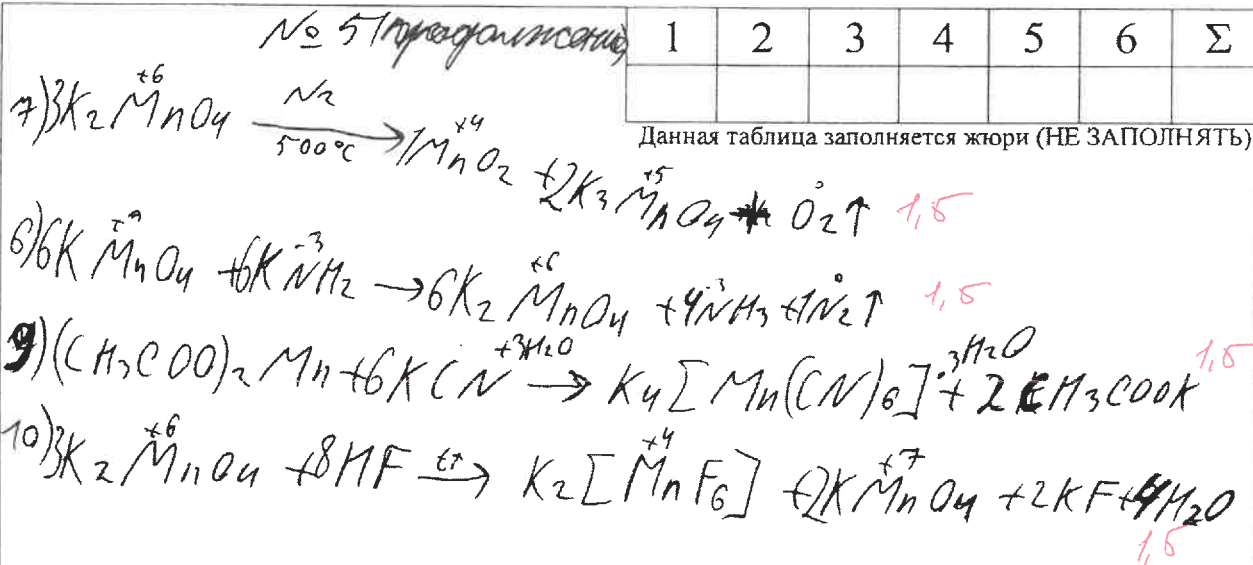 № 5 (продолжение)
1 2 3 4 5 6 Σ
Данная таблица заполняется жюри (НЕ ЗАПОЛНЯТЬ)
7) 3K₂Mn⁺⁶O₄ —N₂, 500°C→ 1Mn⁺⁴O₂ + 2K₃Mn⁺⁵O₄ + O₂⁰↑ 1,5
6) 6KMn⁺⁷O₄ + 6KN⁻³H₂ → 6K₂Mn⁺⁶O₄ + 4N⁻³H₃ + 1N₂⁰↑ 1,5
9) (CH₃COO)₂Mn + 6KCN +3H₂O → K₄[Mn(CN)₆]·3H₂O + 2CH₃COOK 1,5
10) 3K₂Mn⁺⁶O₄ + 8HF —t↑→ K₂[Mn⁺⁴F₆] + 2KMn⁺⁷O₄ + 2KF + 4H₂O
1,5